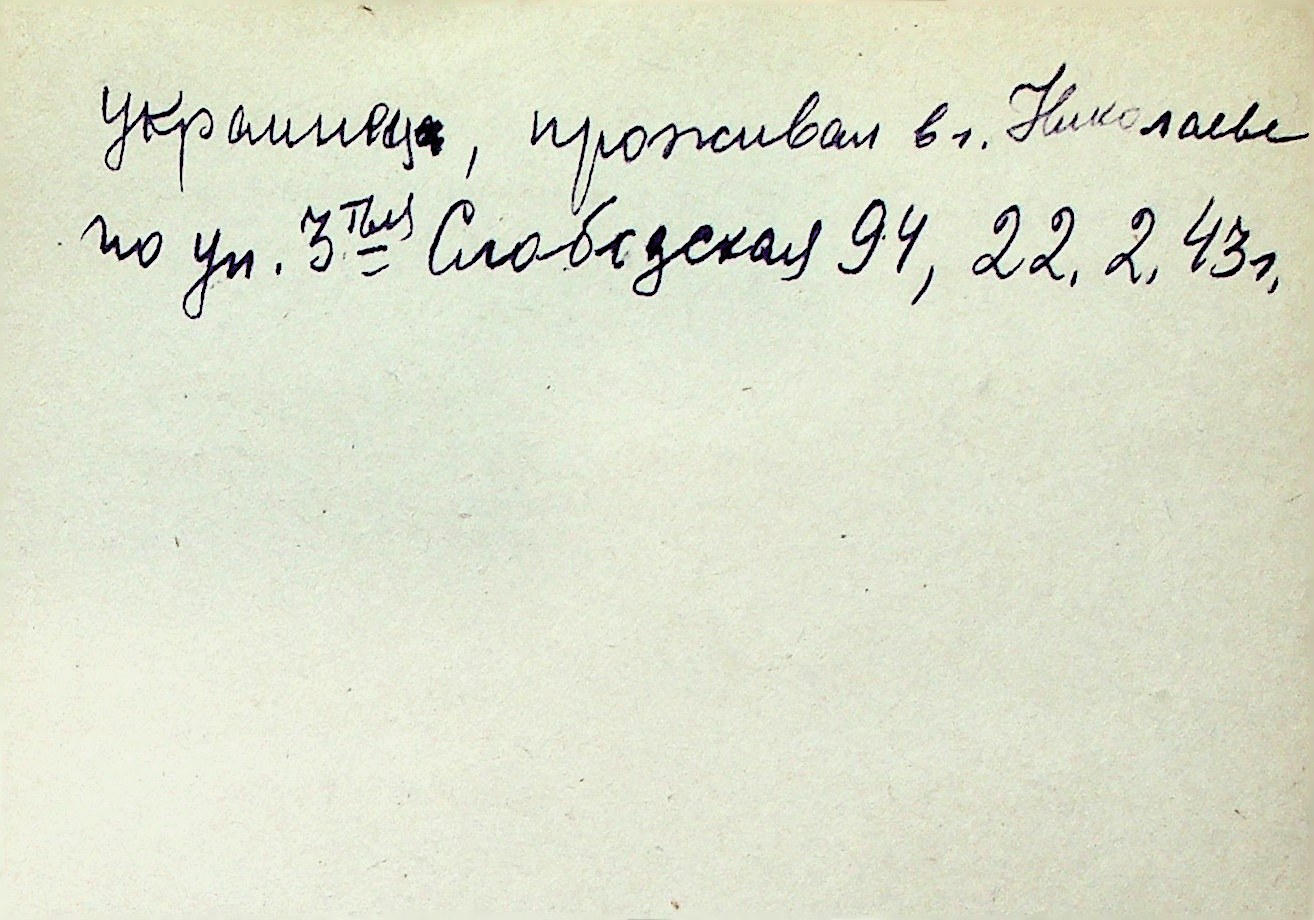 украинец, проживал в г. Николаеве
по ул. 3тья Слободская 94, 22. 2. 43г.